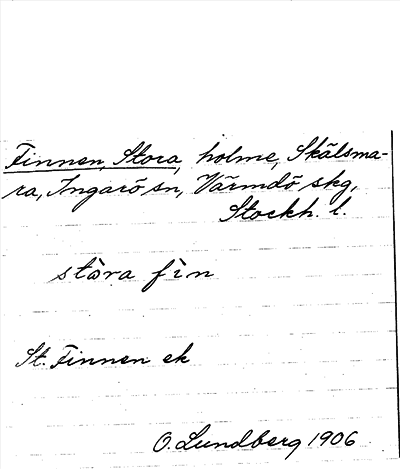 Finnen, Stora, holme, Skälsma-
ra, Ingarö sn, Värmdö skg,
Stockh. l.
stòra fìn
St. Finnen ek
O. Lundberg 1906